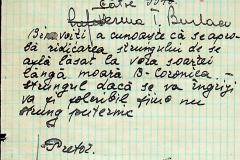 Către
T. Burlacu
Binevoiți a cunoaște că se apro-
bă ridicarea strungului de se
află lăsat la voia soartei
lângă moară B-Coronica. –
strungul dacă se va îngriji
va fi posibil fiind un
strung puternic
Pretor.